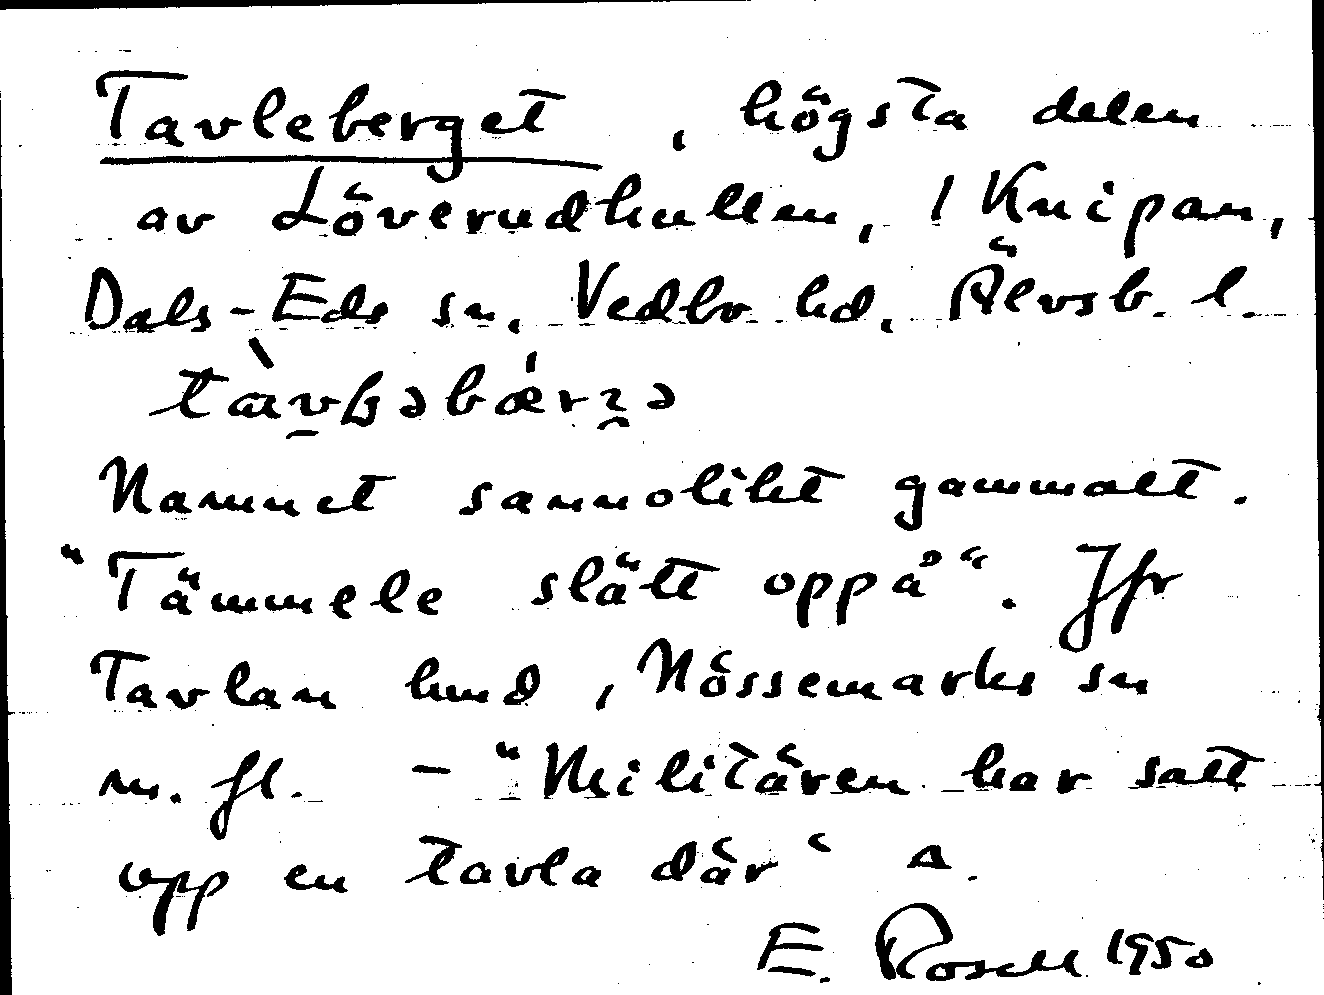 Tavleberget, högsta delen
av Löverudkullen, 1 Knipan,
Dals-Eds sn, Vedbo hd, Älvsb. l.
Namnet sannolikt gammalt.
"Tämmele slätt oppå". Jfr
Tavlan hmd, Nössemarks sn
m. fl. - "Militären har satt
opp en tavla där"
E. Rosell 1950